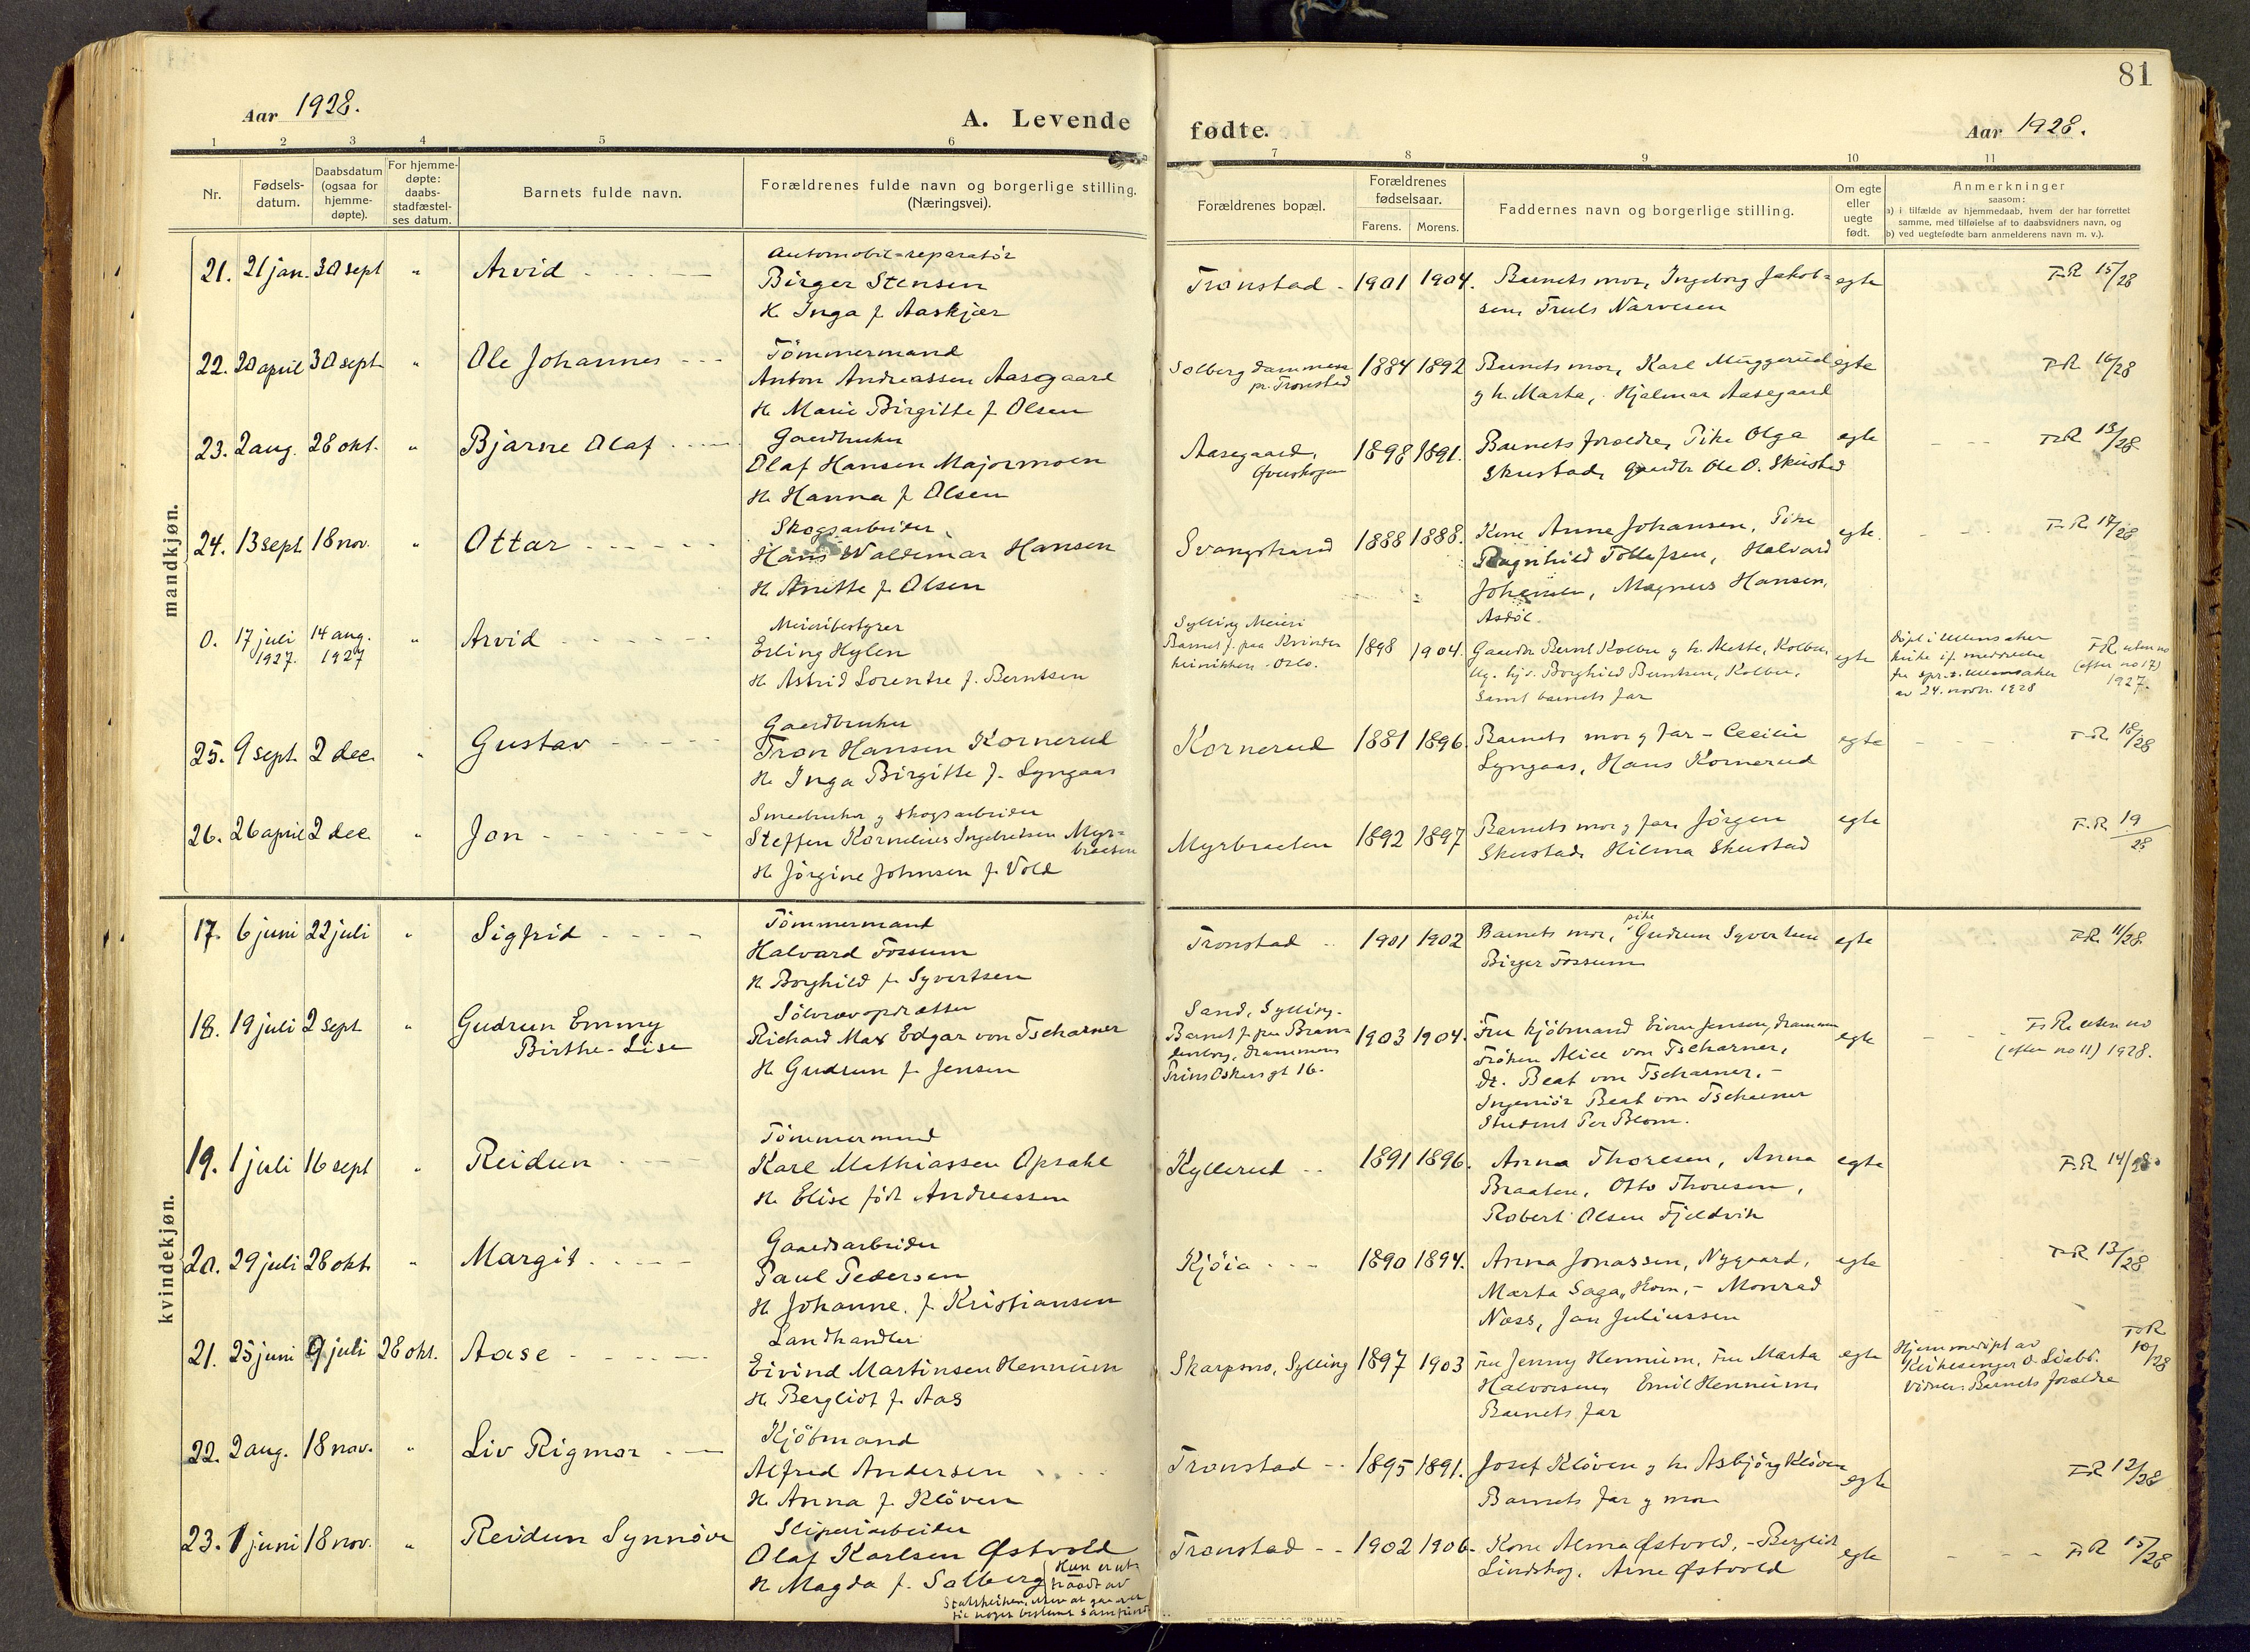 81
Aar 1928.
A. Levende fødte.
Aar 1928.
1 2 3 4 5 6 7 8 9 10 11
Nr.
Fødsels-
datum.
Daabsdatum
(ogsaa for
hjemme-
døpte).
For hjemme-
døpte:
daabs-
stadfæstel-
ses datum.
Barnets fulde navn.
Forældrenes fulde navn og borgerlige stilling.
(Næringsvei).
Forældrenes bopæl.
Forældrenes
fødselsaar.
Farens. Morens.
Faddernes navn og borgerlige stilling.
Om egte
eller
uegte
født.
Anmerkninger
saasom:
a) i tilfælde av hjemmedaab, hvem der har forrettet
samme, med tilføielse af to daabsvidners navn, og
b) ved uegtefødte barn anmelderens navn m. v.).
mandkjøn.
21. 21 jan. 30 sept " Arvid
Automobil-reparatör
Birger Stensen
H. Inga f. Aaskjær
Tronstad - 1901 1904.
Barnets mor, Ingeborg Jakob=
sen, Truls Narvesen
egte
F.R. 15/28
22. 20 april 30 sept. " Ole Johannes
Tömmermand
Anton Andreassen Aasegaard
H. Marie Birgitte f. Olsen
Solbergdammen
pr. Tronstad
1884 1892
Barnets mor, Karl Muggerud
g h. Marta, Hjalmar Aasegaard
egte
F.R. 16/28
23. 2 aug. 28 okt. " Bjarne Olaf
Gaardbruker
Olaf Hansen Majormoen
H. Hanna f. Olsen
Aasegaard,
Øverskogen
1898 1891.
Barnets foreldre, Pike Olga
Skustad, gaardbr. Ole O. Skustad
egte
F.R. 13/28
24. 13 sept. 18 nov. " Ottar
Skogsarbeider
Hans Waldemar Hansen
H. Anette f. Olsen
Svangstrand 1888 1888.
Kone Anne Johansen, Pike
Ragnhild Tollefsen, Halvard
Johansen, Magnus Hansen,
Asdöl.
egte.
F.R. 17/28
0. 17 juli 14 aug. " Arvid
1927. 1927
Meieribestyrer
Erling Hylen
H. Astrid Lorentse f. Berntsen
Sylling Meieri
Barnet f. paa Kvinde-
klinikken - Oslo.
1898 1904.
Gaardbr. Bernt Kolbu g h. Alette, Kolbu,
Borghild Berntsen, Kolbu,
samt barnets far
egte
Döpt i Ullensaker
kirke if. meddelelse
fra spr. i Ullensaker
av 24. novbr. 1928
F.R. uten no
(efter no 17)
1927.
25. 9 sept. 2 dec. " Gustav
Gaardbruker
Tron Hansen Kornerud
H. Inga Birgitte f. Lyngaas
Kornerud 1881 1896.
Barnets mor g far - Cecilie
Lyngaas, Hans Kornerud
egte
F.R. 18/28
26. 26 april 2 dec. " Jon
Smaabruker g skogsarbeider
Steffen Kornelius Ingebretsen Myr=
braaten
H. Jörgine Johnsen f. Vold
Myrbraaten 1892 1897
Barnets mor g far, Jörgen
Skustad, Hilma Skustad
egte
F.R. 19/28
kvindekjøn.
17. 6 juni 22 juli " Sigfrid
Tömmermand
Halvard Fossum
H. Borghild f. Syvertsen
Tronstad 1901 1902
Barnets mor, pike Gudrun Syvertsen
Birger Fossum
egte
F.R. 11/28
18. 19 juli 2 sept " Gudrun Emmy
Birthe-Lise
Sölvrævopdrætter
Richard Max Edgar von Tscharner
H. Gudrun f. Jensen
Sand, Sylling.
Barnet f. paa
Drammen
Prins Oskars gt 16.
1903 1904.
Fru kjöbmand Einar Jensen, Drammen
Fröken Alice von Tscharner,
Dr. Beat von Tscharner, -
Ingeniör Beat von Tscharner
Student Per Blom.
egte
F.R. uten no
(efter no 11) 1928.
19. 1 juli 16 sept " Reidun
Tömmermand
Karl Mathiassen Opsahl
H. Elise född Andreassen
Kyllerud 1891 1896.
Anna Thoresen, Anna
Braaten, Otto Thoresen,
Robert Olsen Fjeldvik
egte
F.R. 14/28.
20. 29 juli 28 okt. " Margit
Gaardsarbeider
Paul Pedersen
H. Johanne f. Kristiansen
Kjöia 1890 1894.
Anna Jonassen, Nygaard,
Marta Saga, Horn, - Monrad
Næss, Jan Juliussen
egte
F.R. 13/28
21. 25 juni 9 juli 28 okt. Aase
Landhandler
Eivind Martinsen Hennum
H. Bergliot f. Aas
Skarpsno, Sylling 1897 1903
Fru Jenny Hennum, Fru Marta
Halvorsen, Emil Hennum,
Barnets far
egte
Hjemmedöpt av
Kirkesanger O. Liabö.
Vidner: Barnets forældre
F.R. 10/28
22. 2 aug. 18 nov. " Liv Rigmor
Kjöbmand
Alfred Andersen
H. Anna f. Klöven
Tronstad 1895 1891.
Josef Klöven g h. Asbjörg Klöven
Barnets far g mor
egte
F.R. 12/28
23. 1 juni 18 nov. " Reidun Synnöve
Sliperiarbeider
Olaf Karlsen Østvold
H. Magda f. Solberg
Hun er ut-
traadt av
Statskirken, uten at gaa over
til noget bestemt samfund
Tronstad 1902 1906.
Kone Alma Østvold, - Bergliot
Lindskog, Arne Østvold
egte
F.R. 15/28